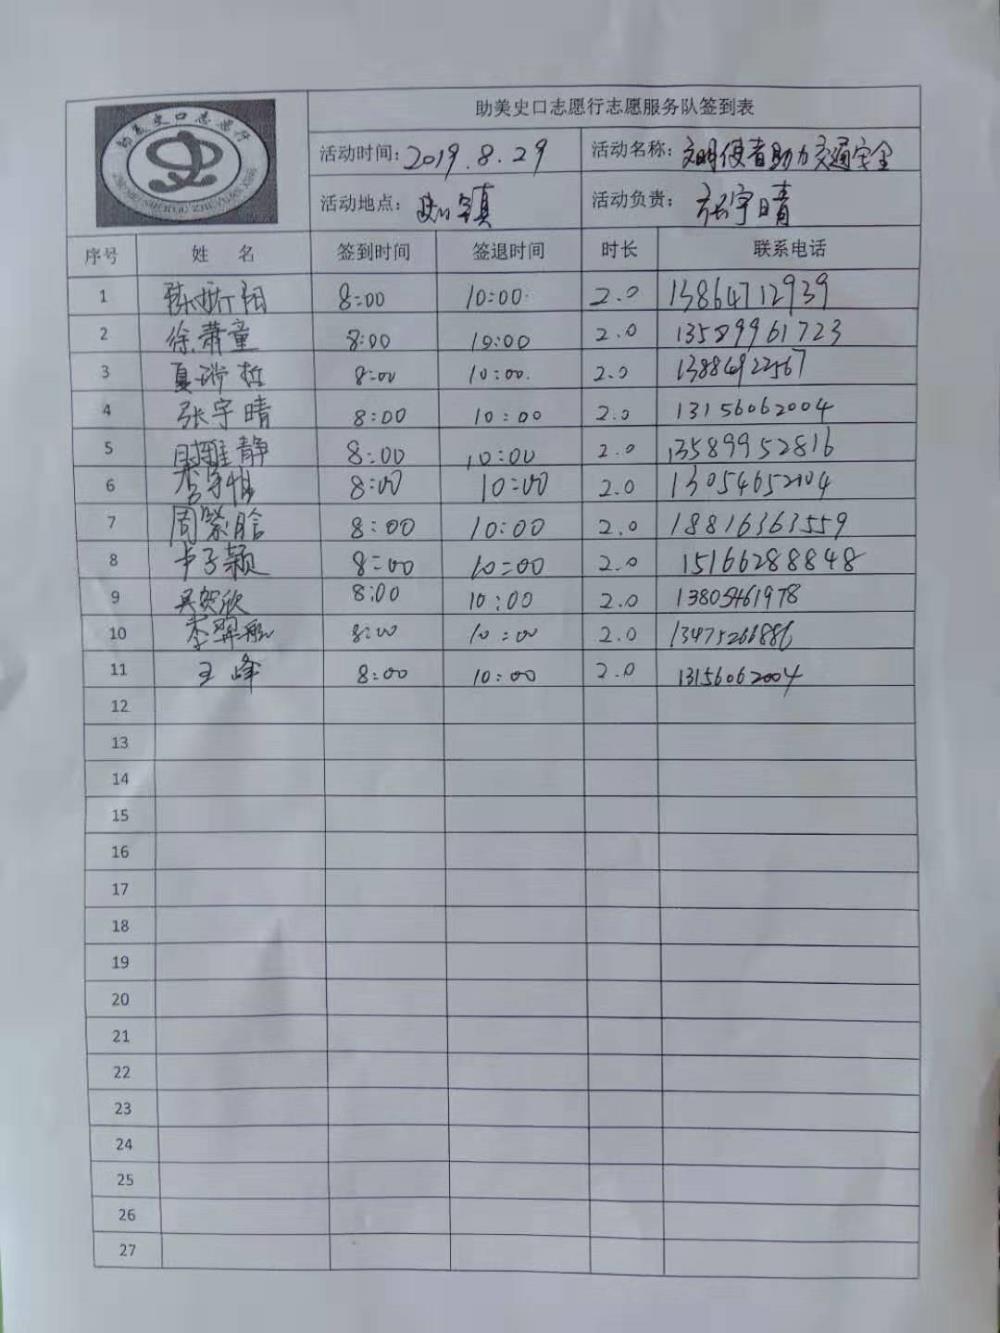 助美史口志愿行
ZHUMEI SHIKOU ZHIYUAN XING
助美史口志愿行志愿服务队签到表
活动时间：2019.8.29 活动名称：文明使者助力交通安全
活动地点：史口镇 活动负责：张宇晴
序号 姓 名 签到时间 签退时间 时长 联系电话
1 8:00 10:00 2.0 13864712939
2 徐萧童 8:00 10:00 2.0 13589961723
3 8:00 10:00 2.0 13884922567
4 张宇晴 8:00 10:00 2.0 13156062004
5 8:00 10:00 2.0 13589952816
6 8:00 10:00 2.0 13054652104
7 周紫晗 8:00 10:00 2.0 18816363559
8 卞子颖 8:00 10:00 2.0 15166288848
9 吴贺欣 8:00 10:00 2.0 13805461978
10 8:00 10:00 2.0 13475266886
11 王峰 8:00 10:00 2.0 13156062004
12
13
14
15
16
17
18
19
20
21
22
23
24
25
26
27